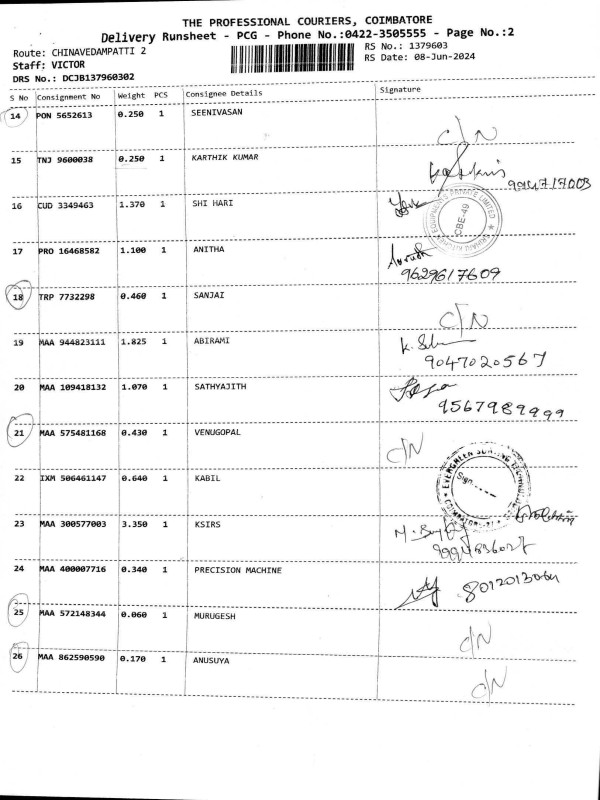 THE PROFESSIONAL COURIERS, COIMBATORE
Delivery Runsheet - PCG - Phone No.:0422-3505555 - Page No.:2
Route: CHINAVEDAMPATTI 2
RS No.: 1379603
Staff: VICTOR
RS Date: 08-Jun-2024
DRS No.: DCJB137960302
S No Consignment No Weight PCS Consignee Details Signature
14 PON 5652613 0.250 1 SEENIVASAN
C/N
15 TNJ 9600038 0.250 1 KARTHIK KUMAR
16 CUD 3349463 1.370 1 SHI HARI
CBE-49
17 PRO 16468582 1.100 1 ANITHA
9629617609
18 TRP 7732298 0.460 1 SANJAI
C/N
19 MAA 944823111 1.825 1 ABIRAMI
9047020567
20 MAA 109418132 1.070 1 SATHYAJITH
9567989999
21 MAA 575481168 0.430 1 VENUGOPAL
C/N
22 IXM 506461147 0.640 1 KABIL
Sign
23 MAA 300577003 3.350 1 KSIRS
24 MAA 400007716 0.340 1 PRECISION MACHINE
25 MAA 572148344 0.060 1 MURUGESH
C/N
26 MAA 862590590 0.170 1 ANUSUYA
C/N